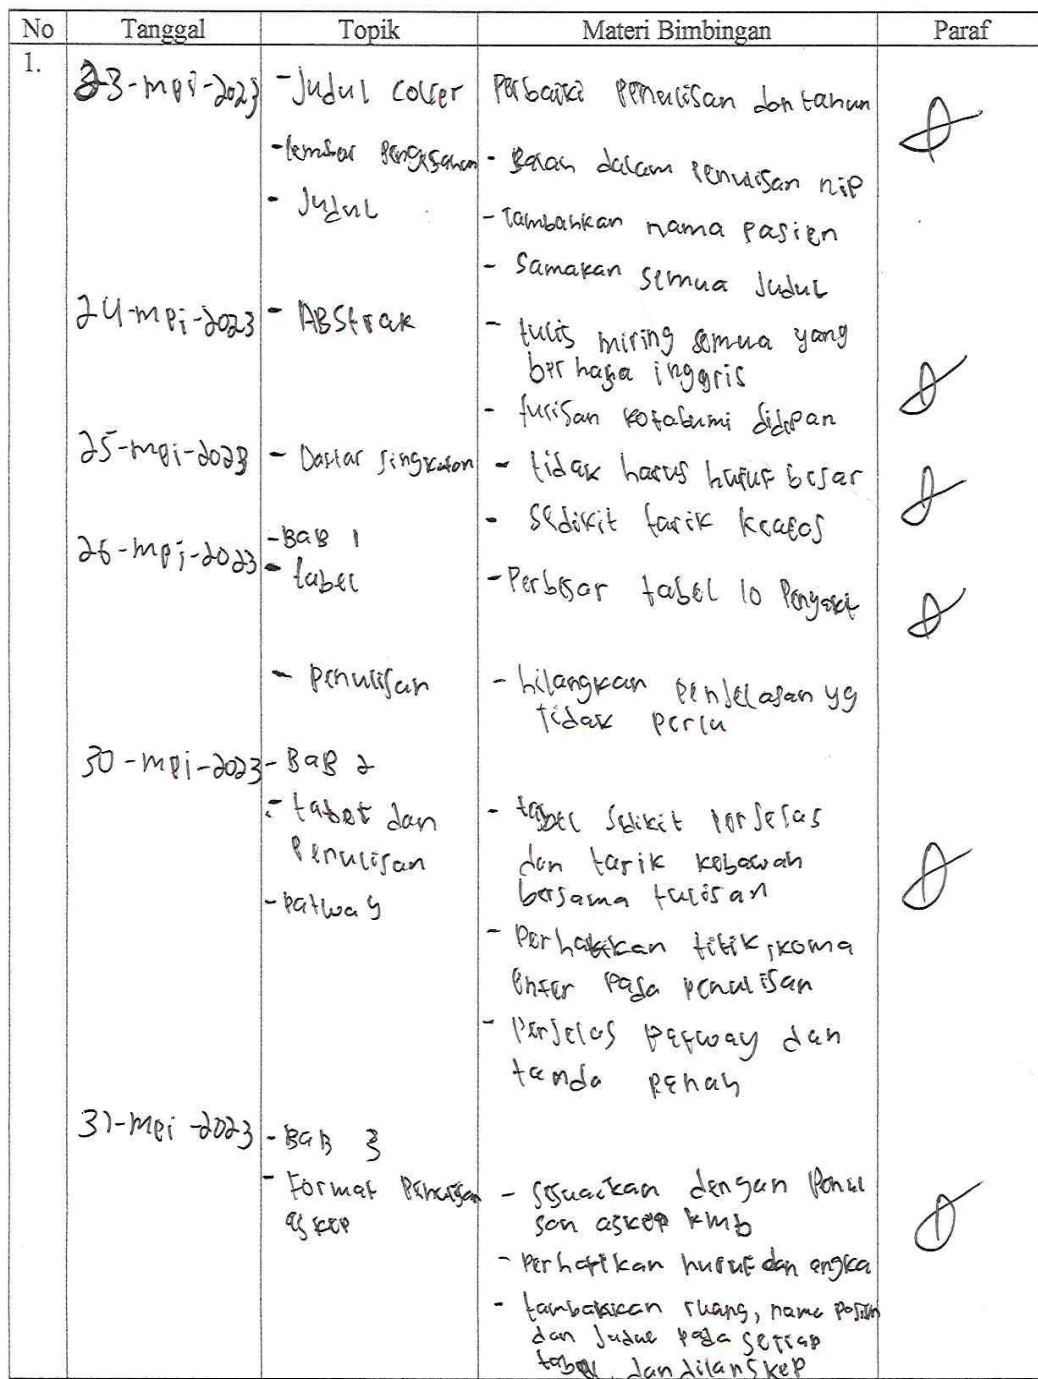 No Tanggal Topik Materi Bimbingan Paraf
1.
23-mei-2023 - Judul cover Perbaiki Penulisan dan tahun
- lembar Pengesahan - Salah dalam Penulisan nip
- Judul - tambahkan nama pasien
- Samakan semua Judul
24-mei-2023 - ABStrak - tulis miring semua yang
berbahasa inggris
- tulisan kotabumi didepan
25-mei-2023 - Daftar Singkatan - tidak harus huruf besar
- Sedikit tarik keatas
26-mei-2023 - BAB 1
- tabel - Perbesar tabel 10 Penyakit
- Penulisan - hilangkan Penjelasan yg
tidak perlu
30-mei-2023 - BAB 2
- tabel dan - tabel sedikit perjelas
Penulisan dan tarik kebawah
bersama tulisan
- Patway
- Perhatikan titik, koma
enter Pada penulisan
- Perjelas Patway dan
tanda Panah
31-mei-2023 - BAB 3
- Format Penulisan - sesuaikan dengan Penul
askep san askep kmb
- Perhatikan huruf dan angka
- tambahkan ruang, nama Pasien
dan Judul pada setiap
tabel, dan dilanskep